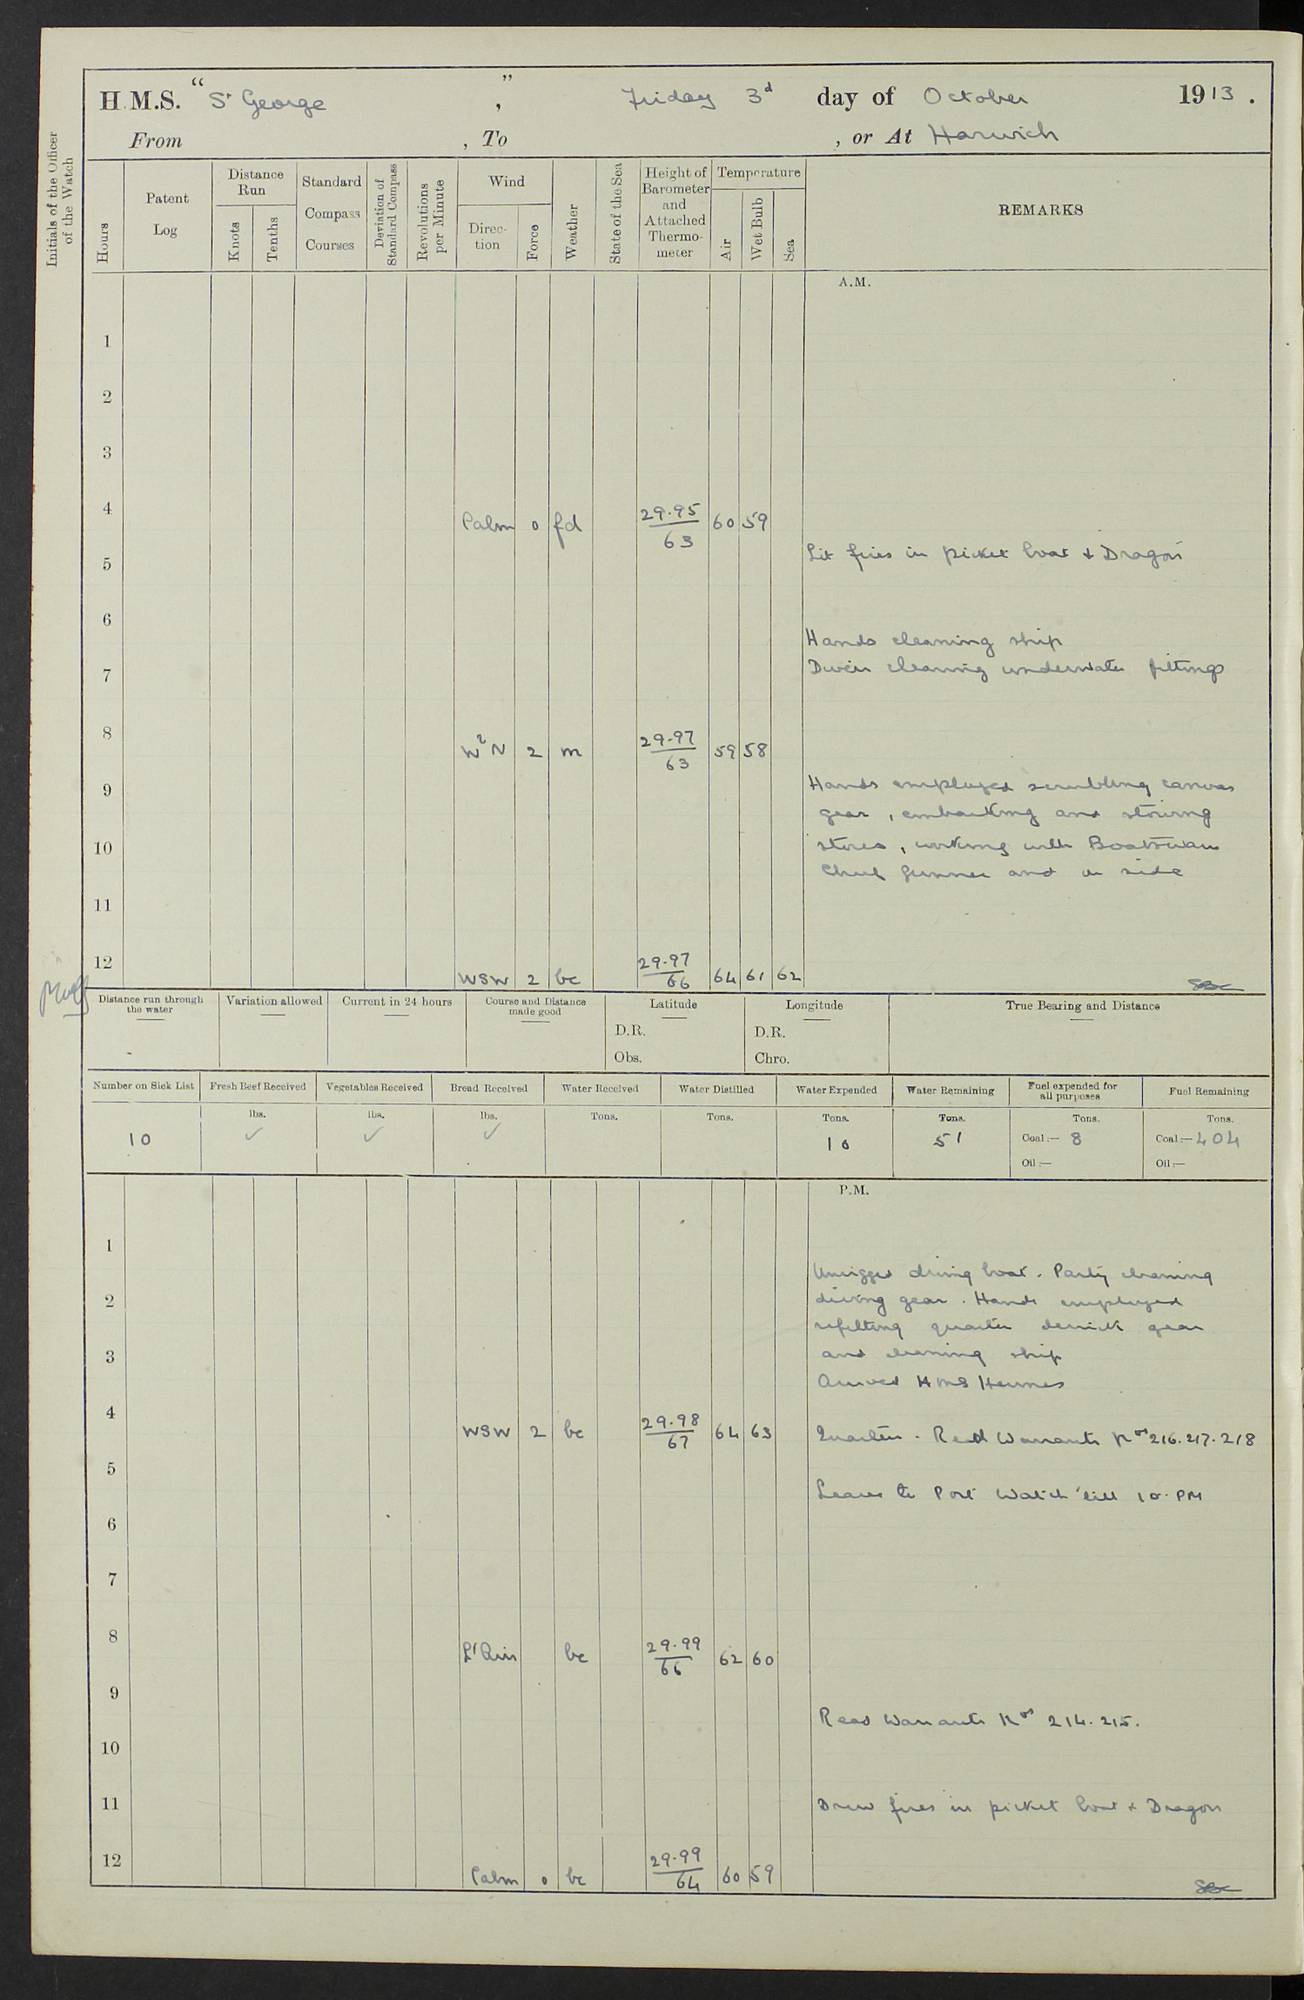 H.M.S. “St George ” , Friday 3d day of October 1913 .
From , To , or At Harwich
Initials of the Officer of the Watch
Hours
Patent Log
Distance Run
Knots
Tenths
Standard Compass Courses
Deviation of Standard Compass
Revolutions per Minute
Wind
Direction
Force
Weather
State of the Sea
Height of Barometer and Attached Thermometer
Temperature
Air
Wet Bulb
Sea
REMARKS
A.M.
1
2
3
4 Calm 0 fd 29.95/63 60 59
5 Lit fires in picket boat & Dragon
6
Hands cleaning ship
7 Divers cleaning underwater fittings
8 WbN 2 m 29.97/63 59 58
9 Hands employed scrubbing canvas
gear, embarking and stowing
10 stores, working with Boatswain
Chief Gunner and on side
11
12 WSW 2 bc 29.97/66 64 61 62
Distance run through the water
Variation allowed
Current in 24 hours
Course and Distance made good
Latitude
D.R.
Obs.
Longitude
D.R.
Chro.
True Bearing and Distance
Number on Sick List Fresh Beef Received Vegetables Received Bread Received Water Received Water Distilled Water Expended Water Remaining Fuel expended for all purposes Fuel Remaining
lbs. lbs. lbs. Tons. Tons. Tons. Tons. Tons. Tons.
10 ✓ ✓ ✓ 10 51 Coal:— 8 Coal:— 404
Oil:— Oil:—
P.M.
1
Unrigged diving boat. Party cleaning
2 diving gear. Hands employed
refitting quarter derrick gear
3 and cleaning ship
Arrived HMS Hermes
4 WSW 2 bc 29.98/67 64 63 Quarters. Read Warrants Nos 216. 217. 218
5
Leave to Port Watch till 10. PM
6
7
8 Lt Airs bc 29.99/66 62 60
9
Read Warrants Nos 214. 215.
10
11 Drew fires in picket boat & Dragon
12 Calm 0 bc 29.99/64 60 59